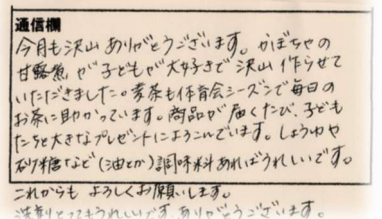 通信欄
今月も沢山ありがとうございます。かぼちゃの
甘露煮が子どもが大好きで沢山作らせて
いただきました。麦茶も体育会シーズンで毎日の
お茶に助かっています。商品が届くたび、子ども
たちと大きなプレゼントによろこんでいます。しょうゆや
砂糖など(油とか)調味料あればうれしいです。
これからも よろしくお願いします。
洗剤とってもうれしいです。ありがとうございます。